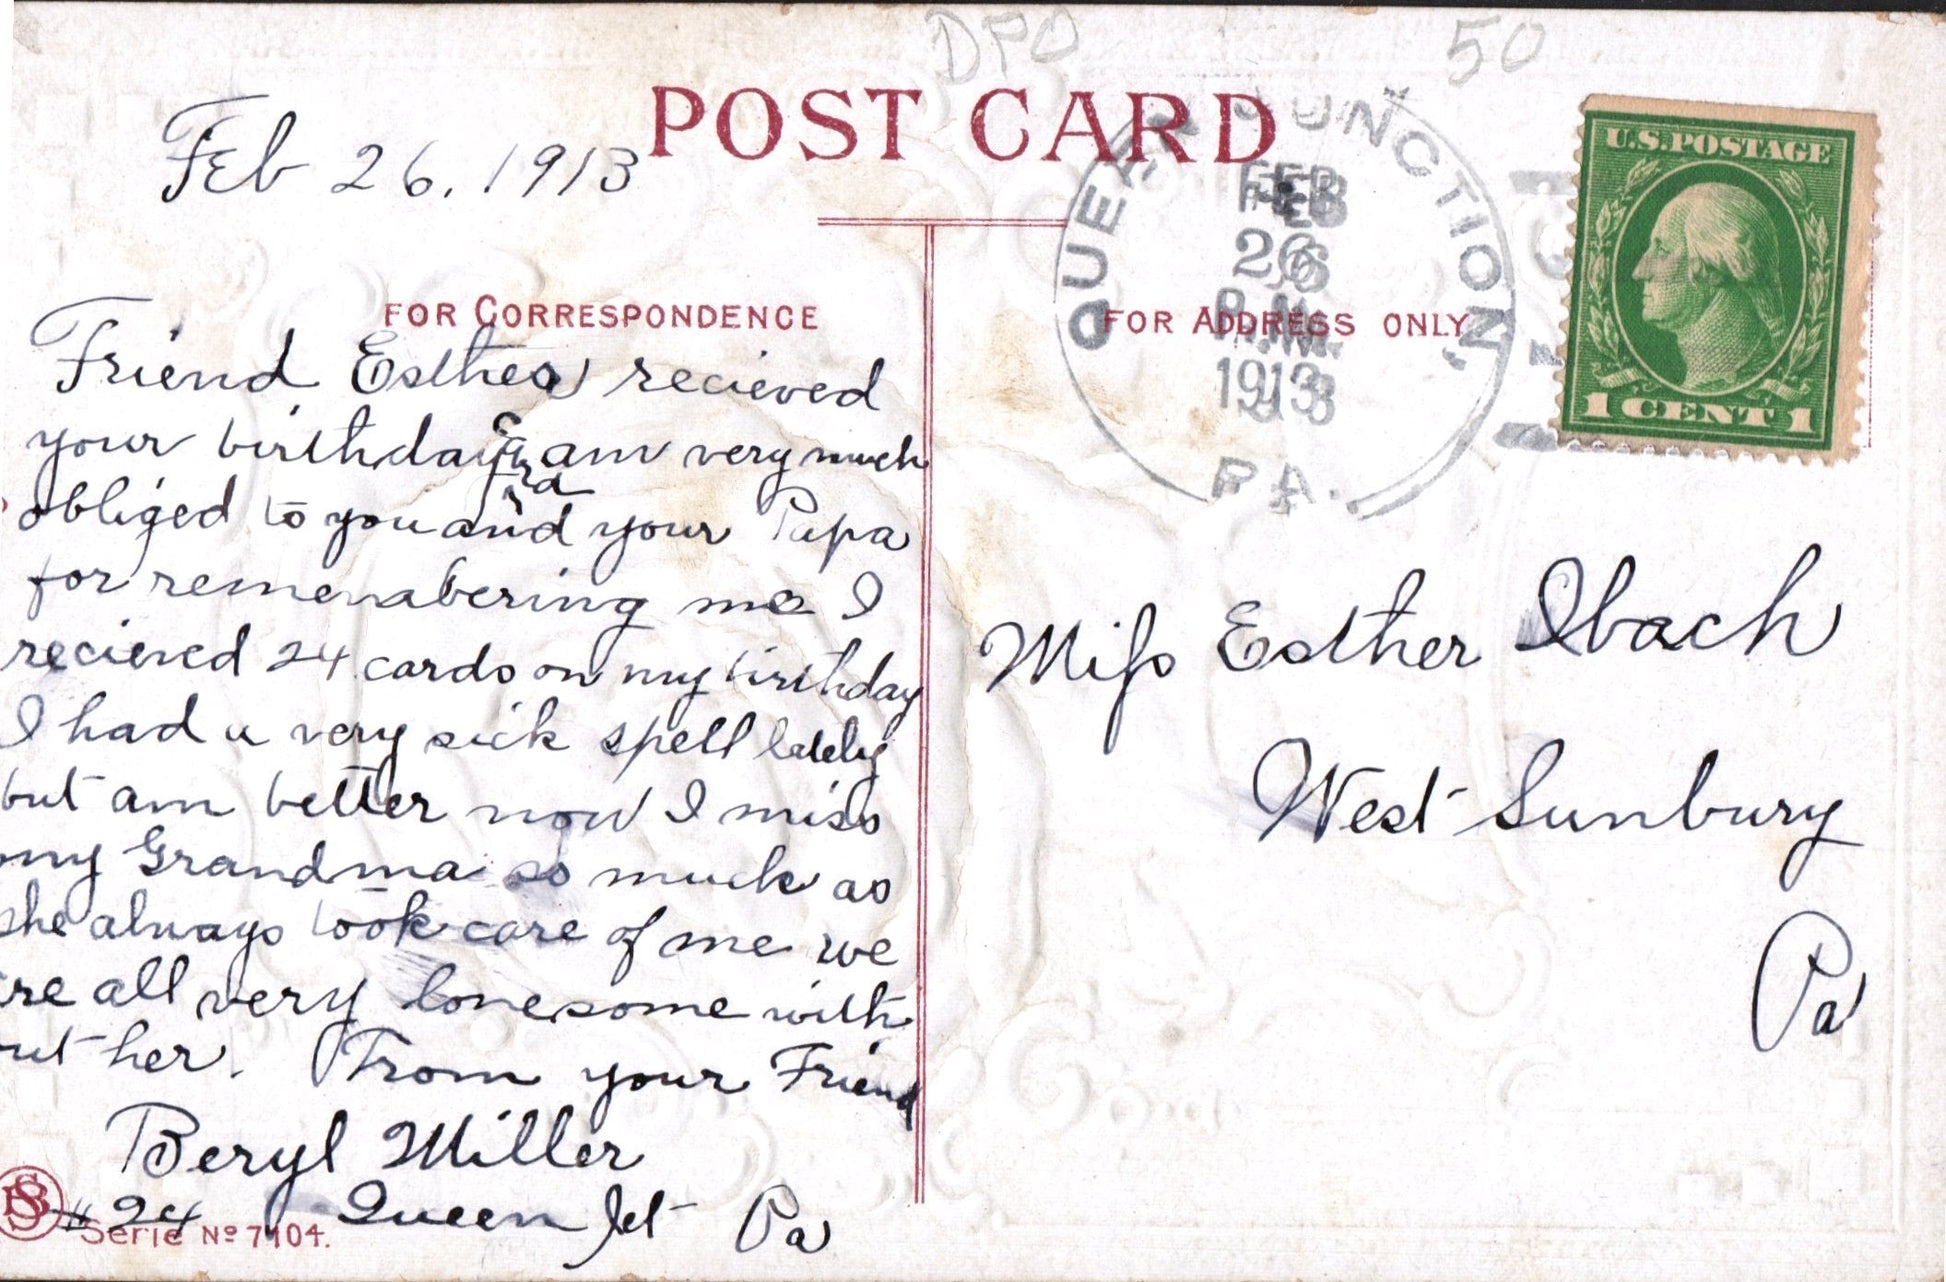 DPO 50
POST CARD
Feb 26, 1913
QUEEN JUNCTION,
FEB
26
P.M.
1913
PA.
U.S. POSTAGE
1 CENT 1
FOR CORRESPONDENCE
FOR ADDRESS ONLY
Friend Esther recieved
your birthday card am very much
obliged to you and your Papa
for remembering me I
recieved 24 cards on my birthday
I had a very sick spell lately
but am better now I miss
my Grandma so much as
she always took care of me we
are all very lonesome with
out her. From your Friend
Beryl Miller
# 24 Queen Jct Pa
Serie No 7104.
Miss Esther Ibach
West Sunbury
Pa